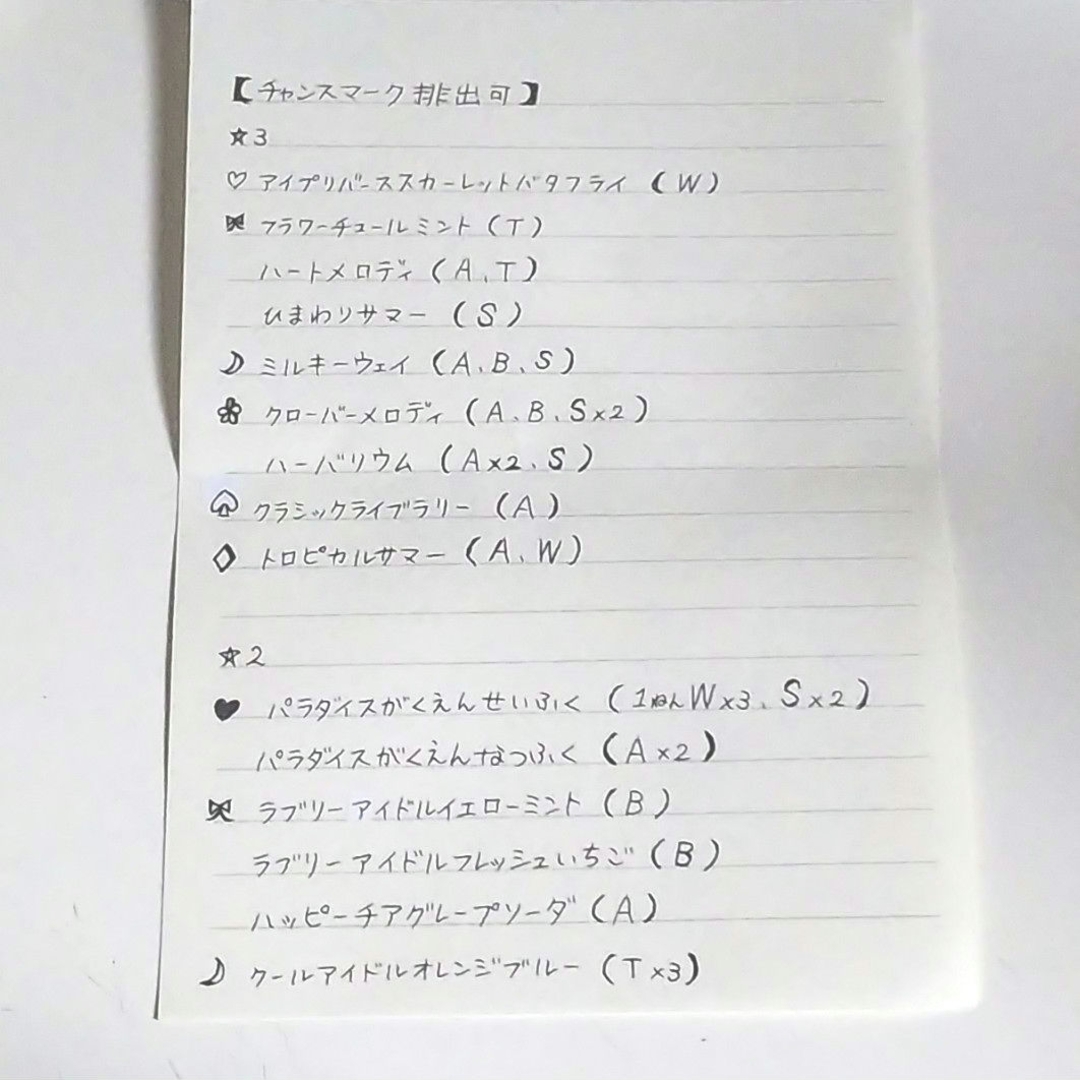 【チャンスマーク排出可】
☆3
♡ アイプリバーススカーレットバタフライ (W)
フラワーチュールミント (T)
ハートメロディ (A、T)
ひまわりサマー (S)
☽ ミルキーウェイ (A、B、S)
クローバーメロディ (A、B、S×2)
ハーバリウム (A×2、S)
♤ クラシックライブラリー (A)
◇ トロピカルサマー (A、W)
☆2
♥ パラダイスがくえんせいふく (1ねんW×3、S×2)
パラダイスがくえんなつふく (A×2)
ラブリーアイドルイエローミント (B)
ラブリーアイドルフレッシュいちご (B)
ハッピーチアグレープソーダ (A)
☽ クールアイドルオレンジブルー (T×3)